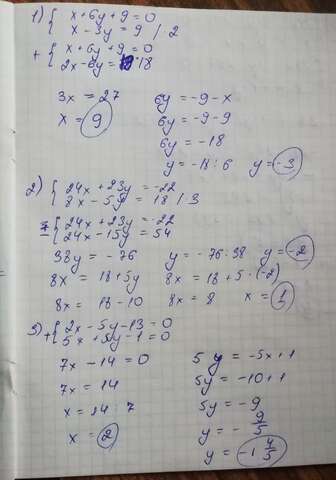 1) { x + 6y + 9 = 0
x - 3y = 9 / 2
+ { x + 6y + 9 = 0
2x - 6y = 18
3x = 27 6y = -9 - x
x = 9 6y = -9 - 9
6y = -18
y = -18 : 6 y = -3
2) { 24x + 23y = -22
8x - 5y = 18 / 3
- { 24x + 23y = -22
24x - 15y = 54
38y = -76 y = -76 : 38 y = -2
8x = 18 + 5y 8x = 18 + 5 · (-2)
8x = 18 - 10 8x = 8 x = 1
3) + { 2x - 5y - 13 = 0
5x + 5y - 1 = 0
7x - 14 = 0 5y = -5x + 1
7x = 14 5y = -10 + 1
x = 14 : 7 5y = -9
x = 2 y = - 9/5
y = -1 4/5